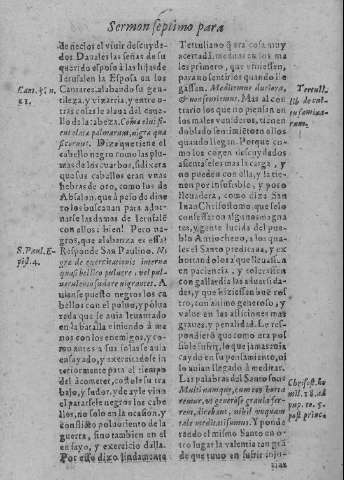 Sermon septimo para
de necios el viuir descuyda-
dos Daua les las señas de su
querido esposo à las hijas de
Ierusalen la Esposa en los
Cantares, alabando su gen-
tileza, y vizarria, y entre o-
tras cosas le alaua del cauel-
Kant. 5. n.
11.
lo de la cabeza.
palmarum, nigra qua-
si coruus. Dize que tiene el
cabello negro como las plu-
mas de los cuerbos, si dixera
que sus cabellos eran vnas
hebras de oro, como los de
Absalon, que à peso de dine-
ro los buscauan para ador-
narse las damas de Ierusalē
con ellos: bien! Pero ne-
gros, que alabanza es essa?
S. Paul. E-
pist. 4.
Responde San Paulino. Ni-
gra de exercitationis interna
quasi bellico puluere, vel pul-
uerulento sudore nigrantes. A
uianse puesto negros los ca-
bellos con el poluo, y polua
reda que se auia leuantado
en la batalla viniendo à ma
nos con los enemigos, y co-
mo antes a sus solas se auia
ensayado, y exercitadose in
teriormente para el tiempo
del acometer, costole su tra
bajo, y sudor, y de ay le vino
el pararsele negros los cabe
llos, no solo en la ocasion, y
conflicto polauoriento de la
guerra, sino tambien en el
ensayo, y exercicio dalla.
Por esso dixo lindamente
Tertuliano q̃ era cosa muy
acertada, meditar en los ma
les primero, que viniessen,
para no sentirlos quando lle
gassen. Meditemur duriora,
& non sentiemus. Mas al con
Tertull.
trario los que no piensan en
los males venideros, tienen
doblado sentimiēto en ellos
quando llegan. Porque co-
mo los cogen descuydados
assientaseles mas la carga, y
no pueden con ella, y la tie-
nen por insufrible, y poco
lleuadera, como dize San
Iuan Chrisostomo, que se lo
confessaron algunos magna
tes, y gente lucida del pue-
blo Antiocheno, à los qua-
les el Santo predicaua, y ex
hortando los à que lleuassen
en paciencia, y tolerassen
con gallardia las aduersida-
des, y que hiziessen buē ros
tro, con animo generoso, y
valor en las afliciones mas
graues, y penalidad. Le res-
pondieron que como era pos
sible sufrir, lo que jamas auia
caydo en su pensamiento, ni
lo auian llegado à meditar.
Las palabras del Santo son:
Multi namque, cum eos horta
remur, vt generose grauia fer-
rent, dicebant, nihil vnquam
tale meditati sumus. Y ponde
rando el mismo Santo en o-
tro lugar la valentia tan grã
de que tuuo en sufrir inju-